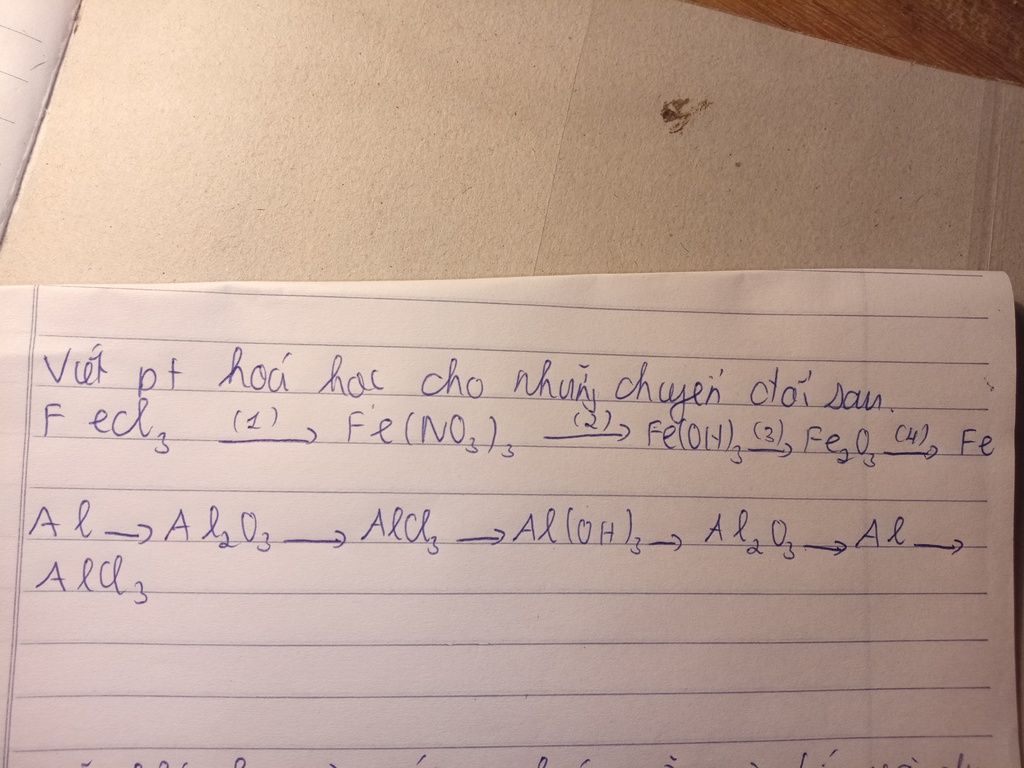 Viết pt hoá học cho những chuyển đổi sau.
FeCl₃ (1)→ Fe(NO₃)₃ (2)→ Fe(OH)₃ (3)→ Fe₂O₃ (4)→ Fe
Al → Al₂O₃ → AlCl₃ → Al(OH)₃ → Al₂O₃ → Al →
AlCl₃